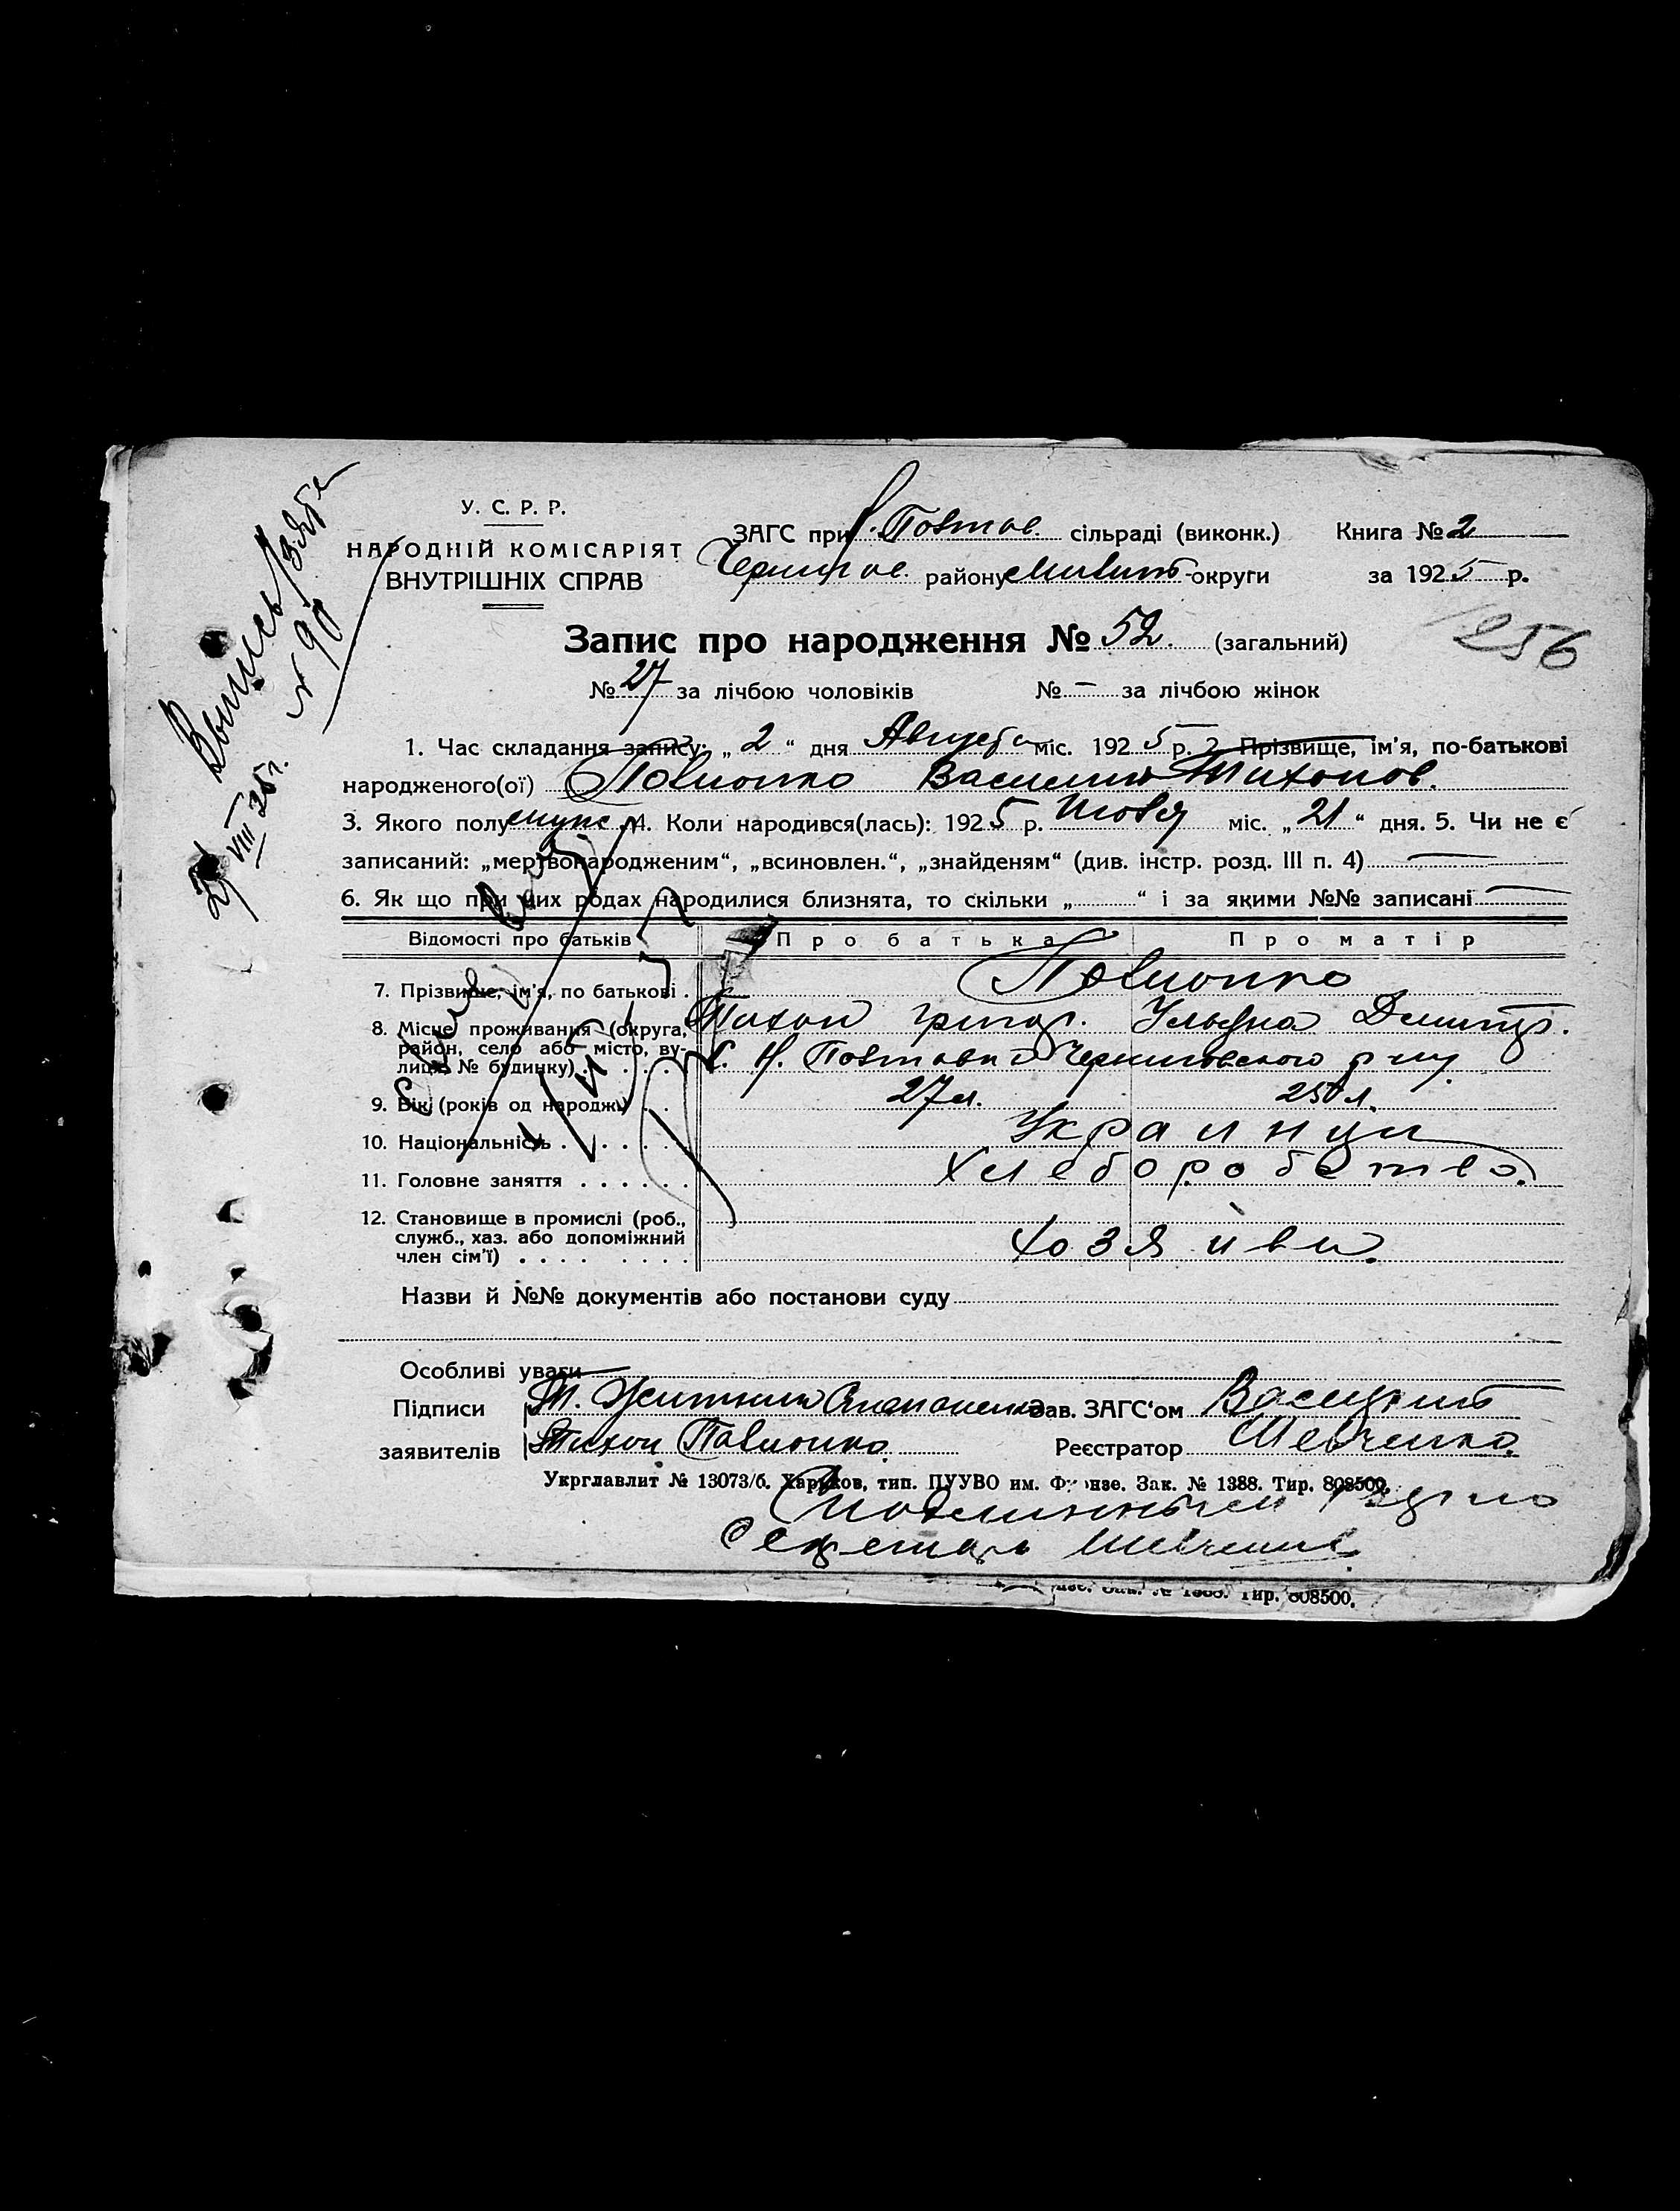 У. С. Р. Р.
НАРОДНІЙ КОМІСАРІЯТ
ВНУТРІШНІХ СПРАВ
ЗАГС при Полтов. сільраді (виконк.) Книга № 2
Чернигов. району округи за 1925 р.
Запис про народження № 52. (загальний)
256
№ 27 за лічбою чоловіків № — за лічбою жінок
1. Час складання запису: „ 2 “ дня Августа міс. 1925 р. 2. Прізвище, ім'я, по-батькові
народженого(ої) Василий Тихонов.
3. Якого полу муж. 4. Коли народився(лась): 1925 р. Июля міс. „ 21 “ дня. 5. Чи не є
записаний: „мертвонародженим“, „всиновлен.“, „знайденям“ (див. інстр. розд. III п. 4)
6. Як що при цих родах народилися близнята, то скільки „ “ і за якими №№ записані
Відомості про батьків Про батька Про матір
7. Прізвище, ім'я, по батькові .
Тихон Григор. Ульяна Дмитр.
8. Місце проживання (округа,
район, село або місто, ву-
лиця, № будинку) . . . . с. Н. Полтавка Черниговского р-ну
9. Вік (років од народж.) . . 27 л. 25 л.
10. Національність . . . . . . Украинци
11. Головне заняття . . . . . . Хлеборобство.
12. Становище в промислі (роб.,
служб., хаз. або допоміжний
член сім'ї) . . . . . . . . Хозяива.
Назви й №№ документів або постанови суду
Особливі уваги
Підписи Т. Житник Зав. ЗАГС'ом
заявителів Тихон Реєстратор Шевченко.
Укрглавлит № 13073/б. Харьков, тип. ПУУВО им. Фрунзе. Зак. № 1388. Тир. 808500.
Секретарь Шевченко
Зак. № 1388. Тир. 808500.
Выпись
№ 90
2/VIII 25 г.